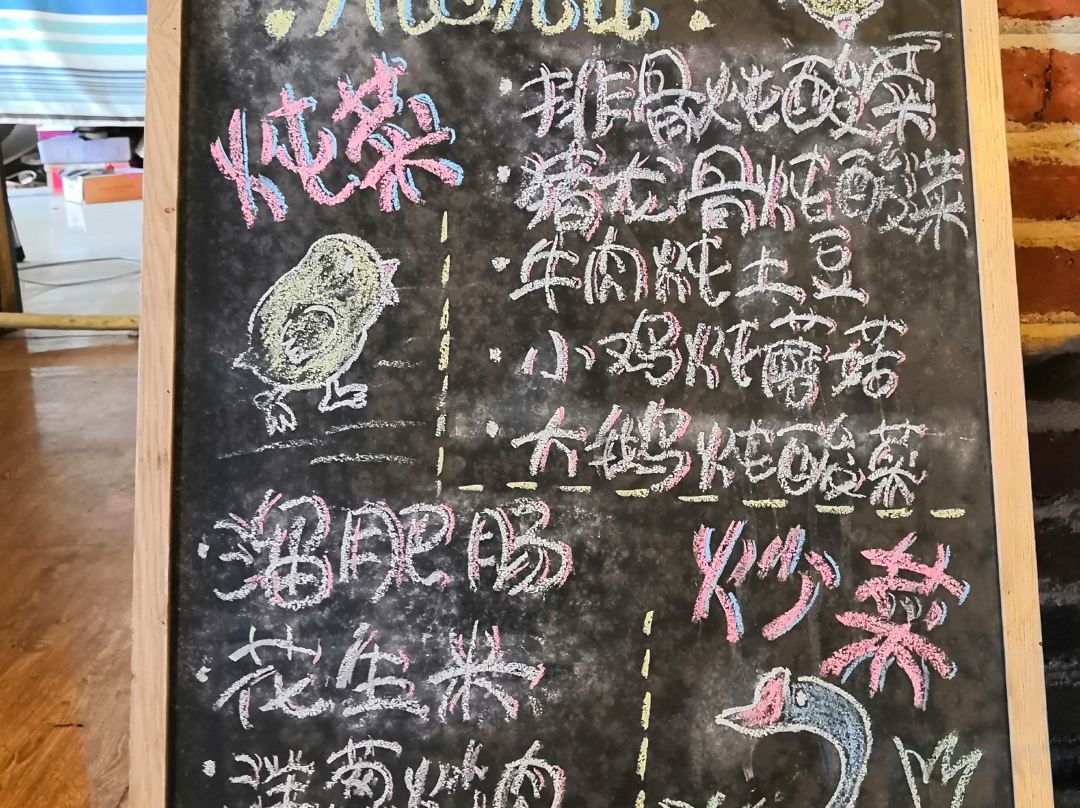 炖菜
·排骨炖酸菜
·猪龙骨炖酸菜
·牛肉炖土豆
·小鸡炖蘑菇
·大鹅炖酸菜
炒菜
·溜肥肠
·花生米